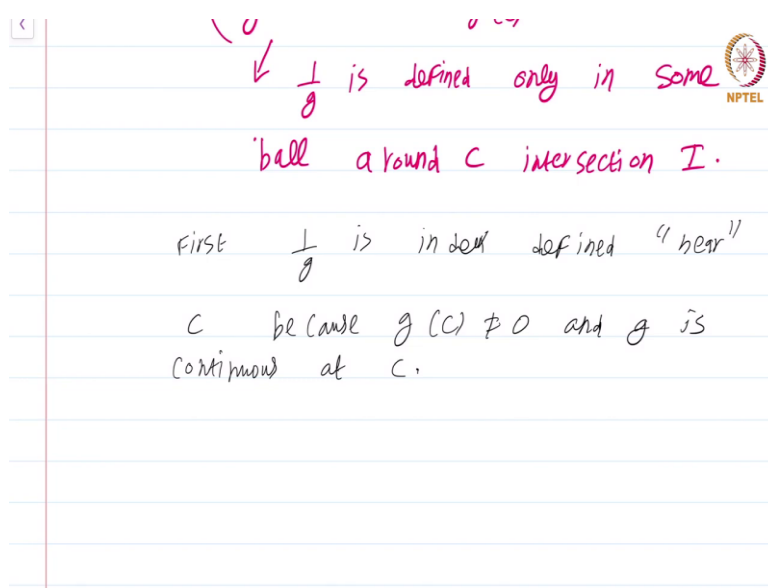 1/g is defined only in some
NPTEL
ball around c intersection I.
First 1/g is indeed defined "near"
c because g(c) ≠ 0 and g is
continuous at c.